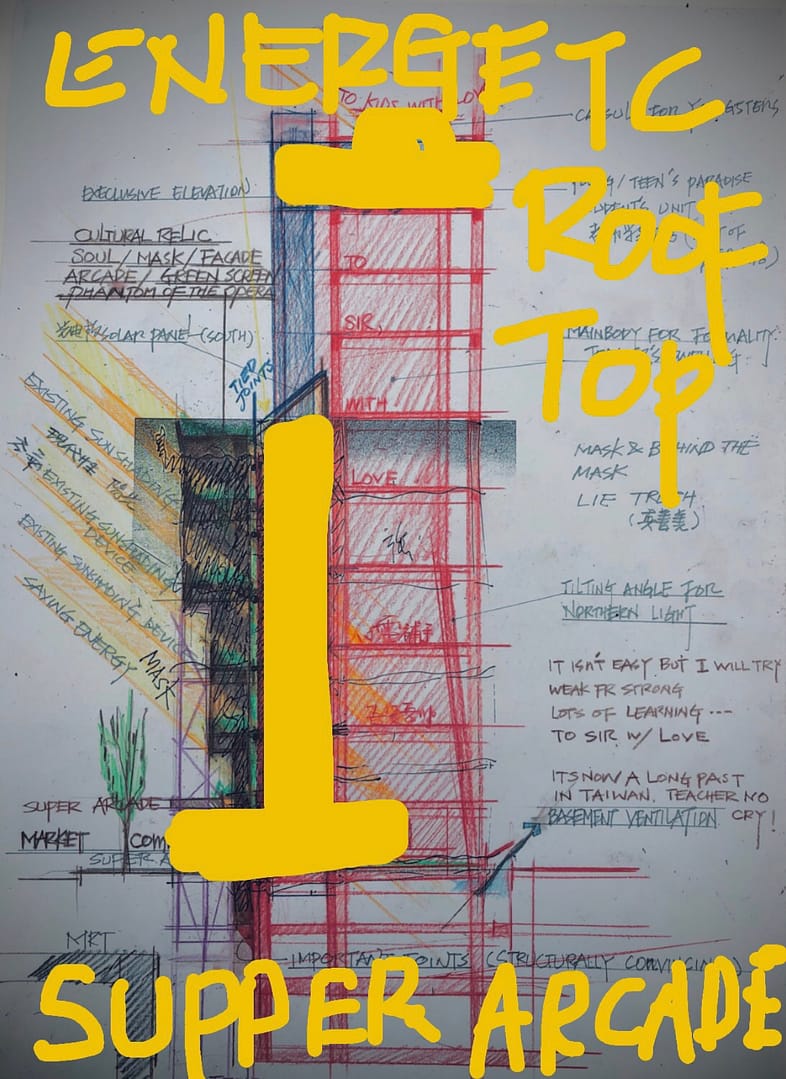 ENERGETC
ROOF
TOP
TO KIDS WITH LOV
EXECLUSIVE ELEVATION
CULTURAL RELIC
SOUL/MASK/FACADE
ARCADE/GREEN SCREEN
PHANTOM OF THE OPERA
SOLAR PANEL (SOUTH)
TIED
JOINTS
TEEN'S PARADISE
UNIT
TO
SIR,
WITH
LOVE
MAINBODY FOR
MASK & BEHIND THE
MASK
LIE TRUTH
EXISTING SUNSHADING
EXISTING SUNSHADING
DEVICE
EXISTING SUNSHADING DEVICE
SAVING ENERGY
MASK
TILTING ANGLE FOR
NORTHERN LIGHT
IT ISN'T EASY BUT I WILL TRY
WEAK FR STRONG
LOTS OF LEARNING ---
TO SIR W/ LOVE
ITS NOW A LONG PAST
IN TAIWAN. TEACHER NO
CRY!
BASEMENT VENTILATION
SUPER ARCADE
MARKET COM
SUPER A
MRT
IMPORTANT JOINTS (STRUCTURALLY CONVINSING)
SUPPER ARCADE